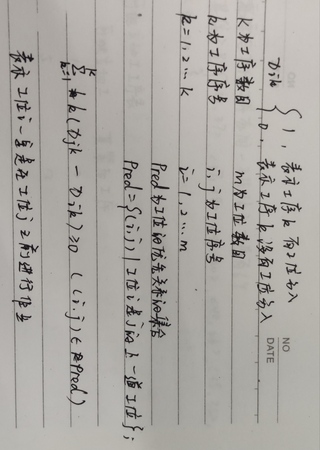 NO
DATE
Djk { 1, 表示工序k 在工位j分入
0, 表示工序k没有工位分入
K为工序数目 m为工位数目
k为工序序号 i,j为工位序号
k=1,2…K i=1,2…m
Pred为工位的优先关系的集合
Pred={(i,j)|工位i是j的上一道工位};
K∑k=1 k(Djk - Dik)≥0 ((i,j)∈Pred)
表示工位i一定是在工位j之前进行作业